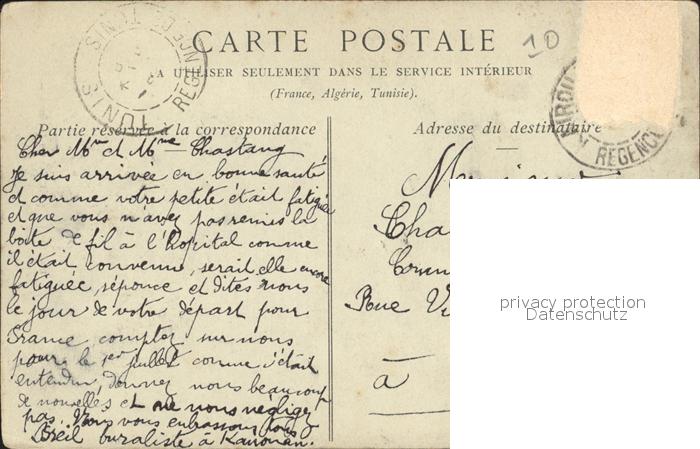 CARTE POSTALE
10
A UTILISER SEULEMENT DANS LE SERVICE INTÉRIEUR
(France, Algérie, Tunisie).
Partie réservée à la correspondance
Cher Mr et Mme Chastang
Je suis arrivée en bonne santé
et comme votre petite était fatiguée
et que vous n'avez pas remis la
boite de fil à l'hopital comme
il était convenue, serait elle encore
fatiguée, réponce et dites nous
le jour de votre départ pour
France comptez sur nous
pour le 1er juillet comme c'était
entendu, donnez nous beaucoup
de nouvelles et ne nous négligez
pas. Nous vous embrassons tous
Breil buraliste à Kairouan.
Adresse du destinataire
Cha
Rue Vi
à
TUNIS
REGENCE DE TUNIS
REGENCE
privacy protection
Datenschutz